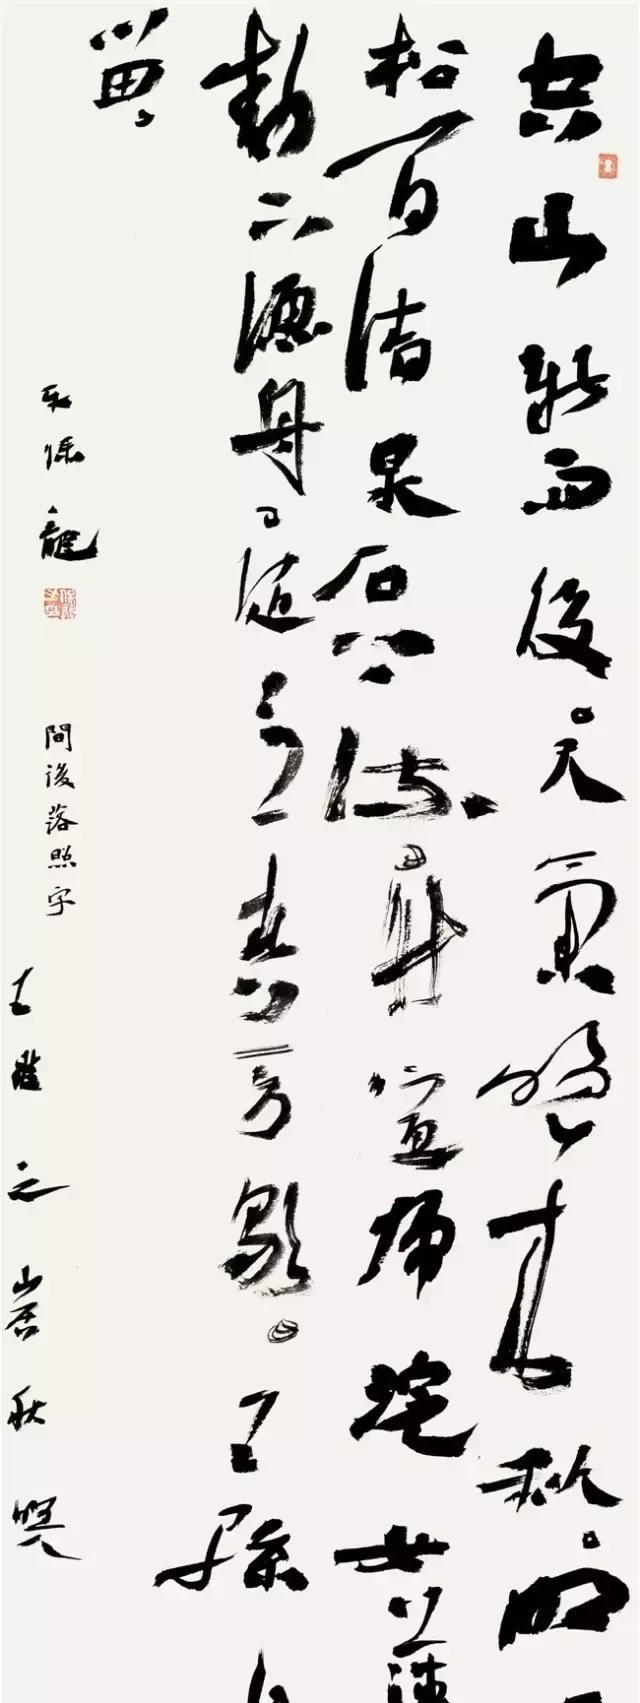 空山新雨後天氣晚來秋明
松間清泉石上流竹喧歸浣女蓮
動下漁舟隨意春芳歇王孫自
留
保龍
間後落照字
王維之山居秋暝